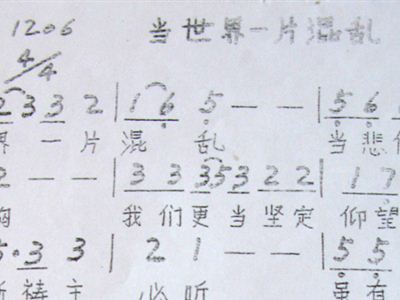 1206 当世界一片混乱
4/4
2 3 3 2 | 1 6 5 — — | 5 6
界 一 片 混 乱 当 悲
2 — — | 3 3 3 5 3 2 2 | 1 7
我 们 更 当 坚 定 仰 望
5 · 3 3 | 2 1 — — | 5 5
祷 主 必 听 虽 有